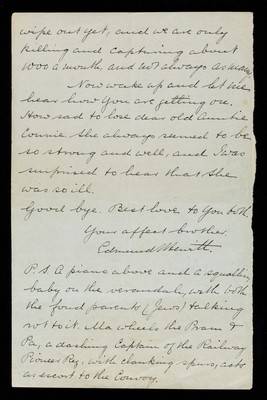 wipe out yet, and we are only
killing and capturing about
1000 a month, and not always as many.
Now wake up and let me
hear how you are getting on.
How sad to lose dear old Auntie
Connie. She always seemed to be
so strong and well, and I was
surprised to hear that she
was so ill.
Good bye. Best love to you both,
Your affect brother.
Edmund Hewitt.
P.S. A piano above and a squalling
baby on the verandah, with both
the fond parents (Jews) talking
rot to it. Ma wheels the Pram &
Pa, a dashing Captain of the Railway
Pioneer Reg, with clanking spurs, acts
as escort to the Convoy.